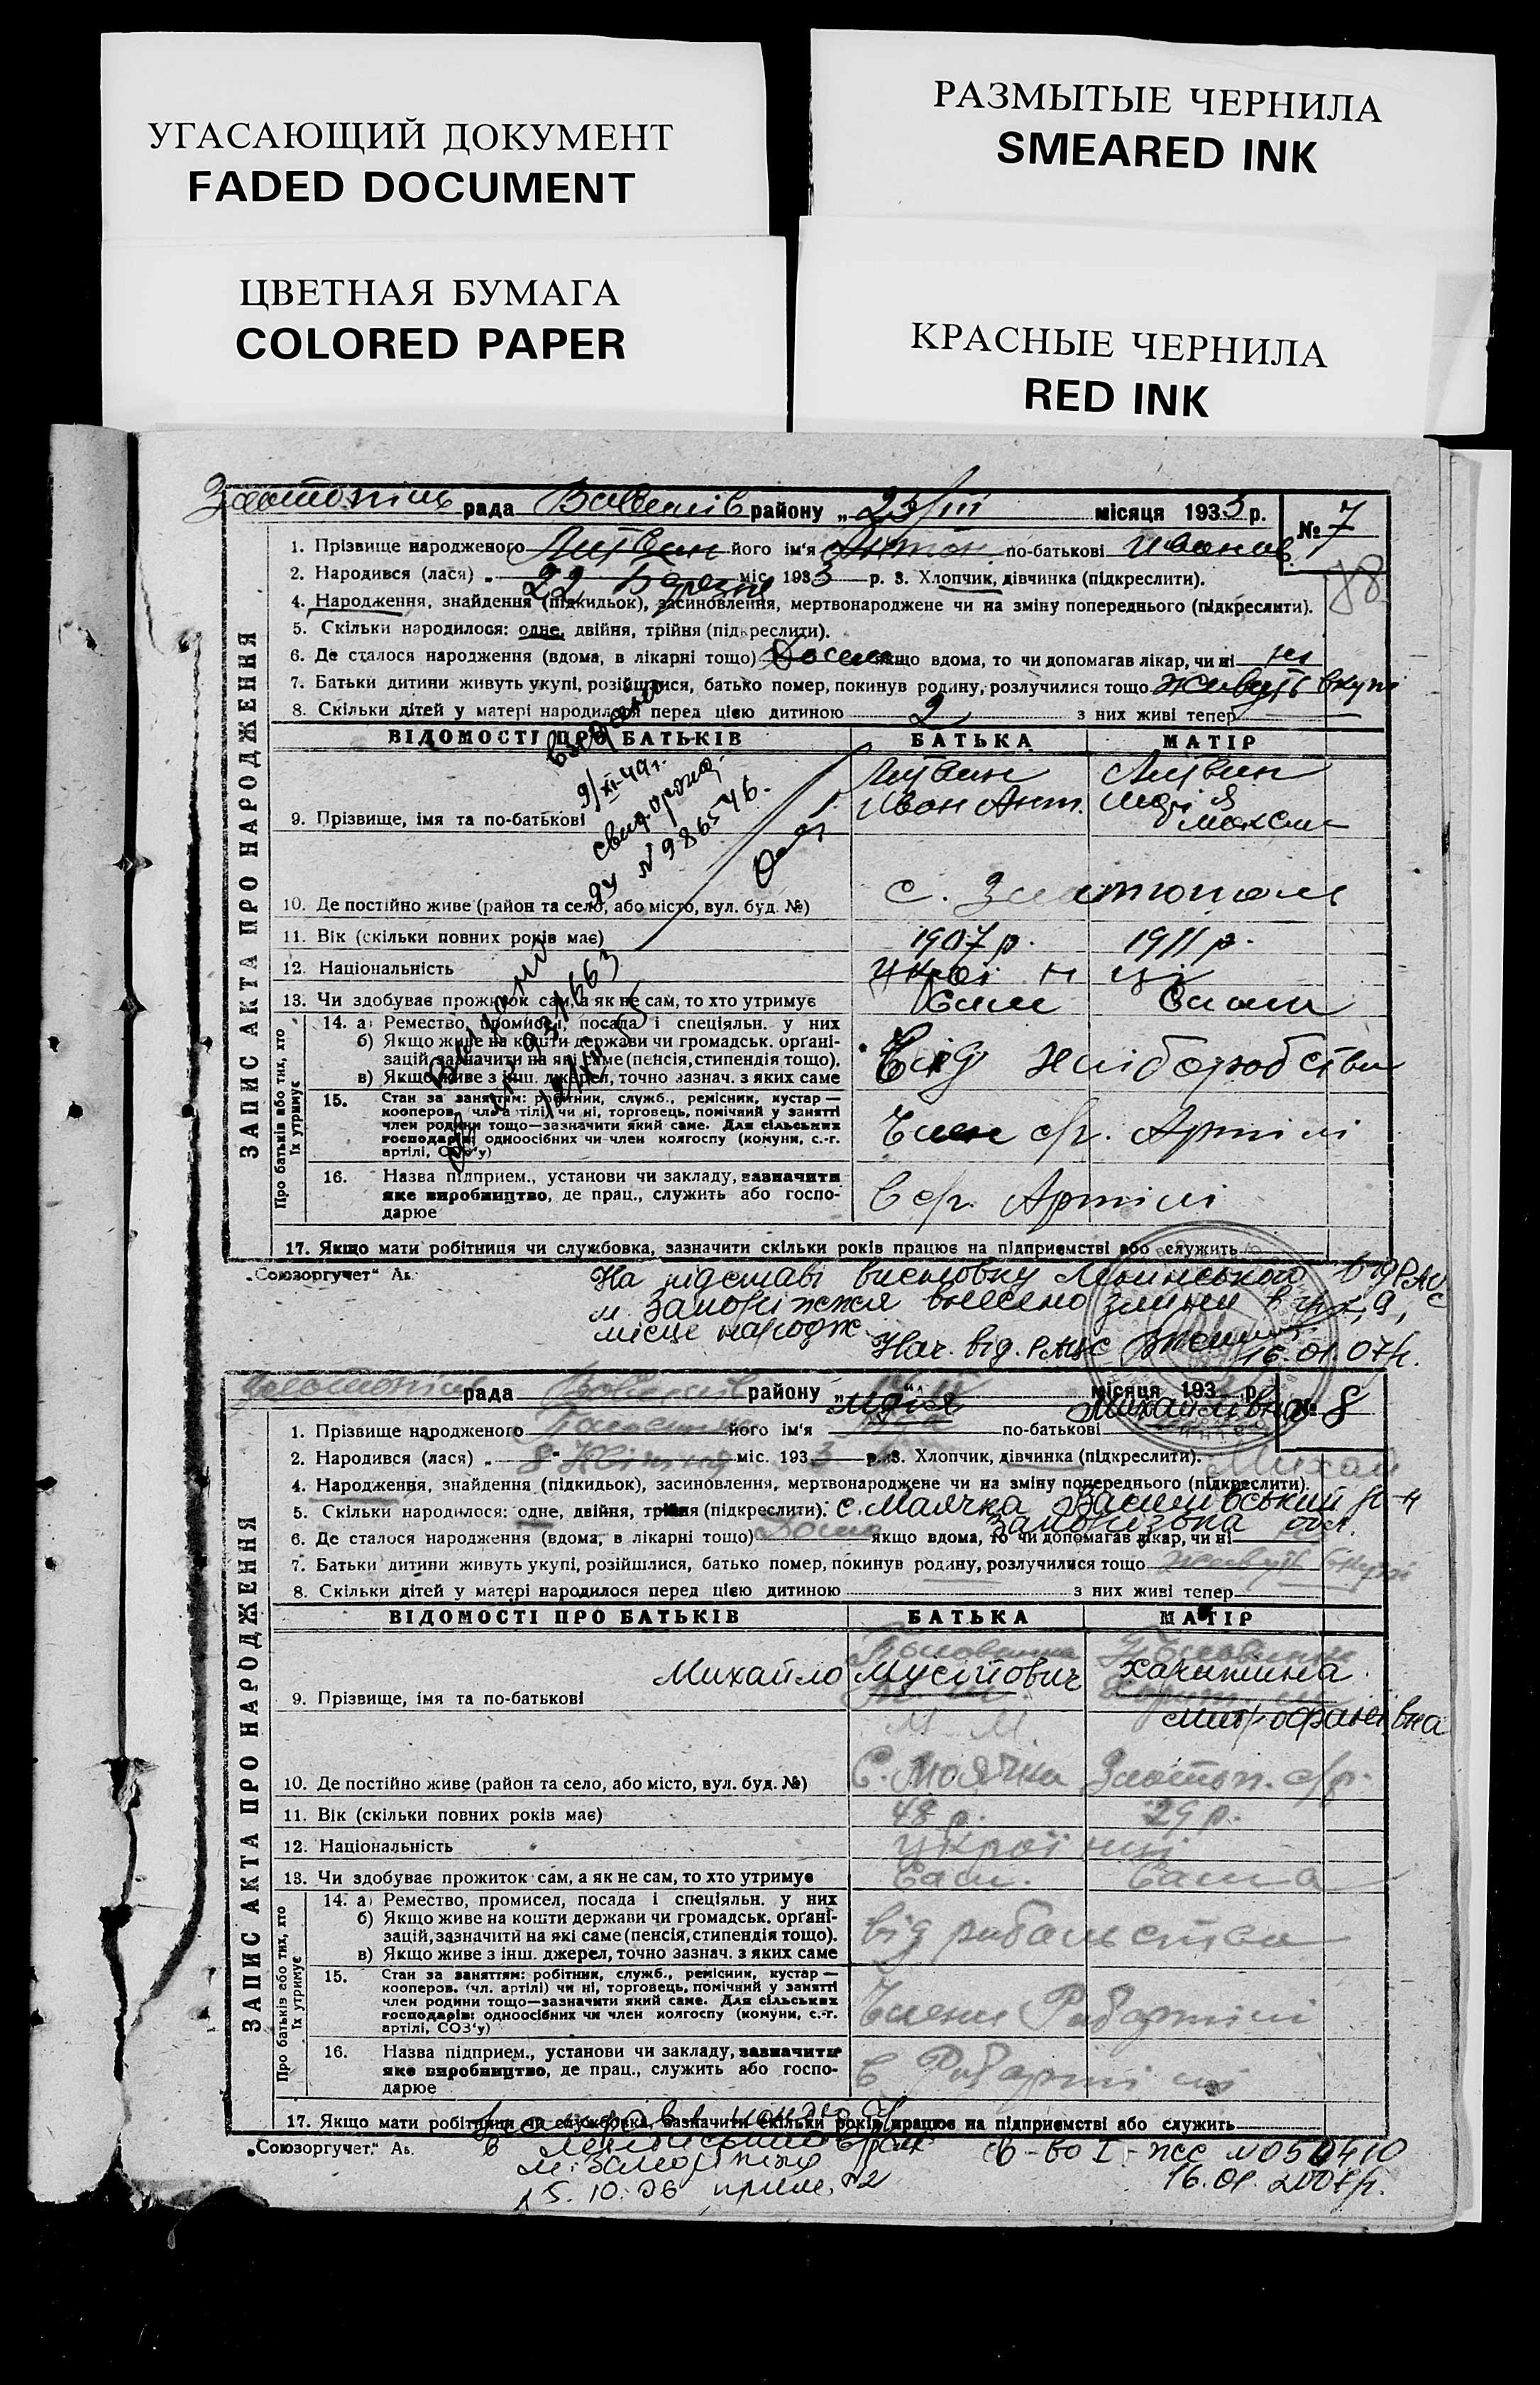 УГАСАЮЩИЙ ДОКУМЕНТ
FADED DOCUMENT
РАЗМЫТЫЕ ЧЕРНИЛА
SMEARED INK
ЦВЕТНАЯ БУМАГА
COLORED PAPER
КРАСНЫЕ ЧЕРНИЛА
RED INK
рада району „ 23/III місяця 1933 р. № 7
88
1. Прізвище народженого Литвин його ім'я Антон по-батькові Иванов.
2. Народився (лася) „ 22 Березня міс. 1933 р. 3. Хлопчик, дівчинка (підкреслити).
4. Народження, знайдення (підкидьок), засиновлення, мертвонароджене чи на зміну попереднього (підкреслити).
5. Скільки народилося: одне, двійня, трійня (підкреслити).
6. Де сталося народження (вдома, в лікарні тощо) якщо вдома, то чи допомагав лікар, чи ні ні
7. Батьки дитини живуть укупі, розійшлися, батько помер, покинув родину, розлучилися тощо живуть вкупі
8. Скільки дітей у матері народилося перед цією дитиною 2 з них живі тепер
ЗАПИС АКТА ПРО НАРОДЖЕННЯ
ВІДОМОСТІ ПРО БАТЬКІВ БАТЬКА МАТІР
Литвин Литвин
9. Прізвище, імя та по-батькові Иван Ант. Марія
9/XI-49г.
№ 986546.
10. Де постійно живе (район та село, або місто, вул. буд. №) с. Златополь
11. Вік (скільки повних років має) 1907 р. 1911 р.
12. Національність Украї н ці
13. Чи здобуває прожиток сам, а як не сам, то хто утримує Сам Сама
Про батьків або тих, хто їх утримує
14. а) Ремество, промисел, посада і спеціяльн. у них
б) Якщо живе на кошти держави чи громадськ. органі-
зацій, зазначити на які саме (пенсія, стипендія тощо).
в) Якщо живе з інш. джерел, точно зазнач. з яких саме
Від хліборобства
15. Стан за заняттям: робітник, служб., ремісник, кустар —
кооперов. (чл. артілі) чи ні, торговець, помічний у занятті
член родини тощо—зазначити який саме. Для сільських
господарів: одноосібних чи член колгоспу (комуни, с.-г.
артілі, СОЗ'у)
Член с/г. Артілі
16. Назва підприєм., установи чи закладу, зазначити
яке виробництво, де прац., служить або госпо-
дарює
В с/г. Артілі
17. Якщо мати робітниця чи службовка, зазначити скільки років працює на підприємстві або служить
„Союзоргучет“
На підставі висновку Ленінського від РАЦС
м. Запоріжжя внесено зміни в гр. 9,
місце народж.
Нач. від. РАЦС 16.01.07р.
рада району „ місяця 193 р. № 8
Майя Михайлівна
1. Прізвище народженого його ім'я по-батькові
2. Народився (лася) „ 8 " Квітня міс. 1933 р. 3. Хлопчик, дівчинка (підкреслити).
4. Народження, знайдення (підкидьок), засиновлення, мертвонароджене чи на зміну попереднього (підкреслити).
5. Скільки народилося: одне, двійня, трійня (підкреслити). с. Маячка Василівський р-н
Запорізька обл.
6. Де сталося народження (вдома, в лікарні тощо) Дома якщо вдома, то чи допомагав лікар, чи ні
7. Батьки дитини живуть укупі, розійшлися, батько помер, покинув родину, розлучилися тощо живуть вкупі
8. Скільки дітей у матері народилося перед цією дитиною з них живі тепер
ЗАПИС АКТА ПРО НАРОДЖЕННЯ
ВІДОМОСТІ ПРО БАТЬКІВ БАТЬКА МАТІР
Михайло Мусійович
9. Прізвище, імя та по-батькові
Митрофанівна
10. Де постійно живе (район та село, або місто, вул. буд. №) С. Маячка Златоп. с/р.
11. Вік (скільки повних років має) 48 р. 29 р.
12. Національність Украї нці
13. Чи здобуває прожиток сам, а як не сам, то хто утримує Сам. Сама
Про батьків або тих, хто їх утримує
14. а) Ремество, промисел, посада і спеціяльн. у них
б) Якщо живе на кошти держави чи громадськ. органі-
зацій, зазначити на які саме (пенсія, стипендія тощо).
в) Якщо живе з інш. джерел, точно зазнач. з яких саме
від рибальства
15. Стан за заняттям: робітник, служб., ремісник, кустар —
кооперов. (чл. артілі) чи ні, торговець, помічний у занятті
член родини тощо—зазначити який саме. Для сільських
господарів: одноосібних чи член колгоспу (комуни, с.-г.
артілі, СОЗ'у)
Члени Рибартілі
16. Назва підприєм., установи чи закладу, зазначити
яке виробництво, де прац., служить або госпо-
дарює
в Рибартілі
17. Якщо мати робітниця чи службовка, зазначити скільки років працює на підприємстві або служить
„Союзоргучет.“
м. Запоріжжя
15.10.06 прим. 2
св-во І-ЖС №050410
16.01.2007р.